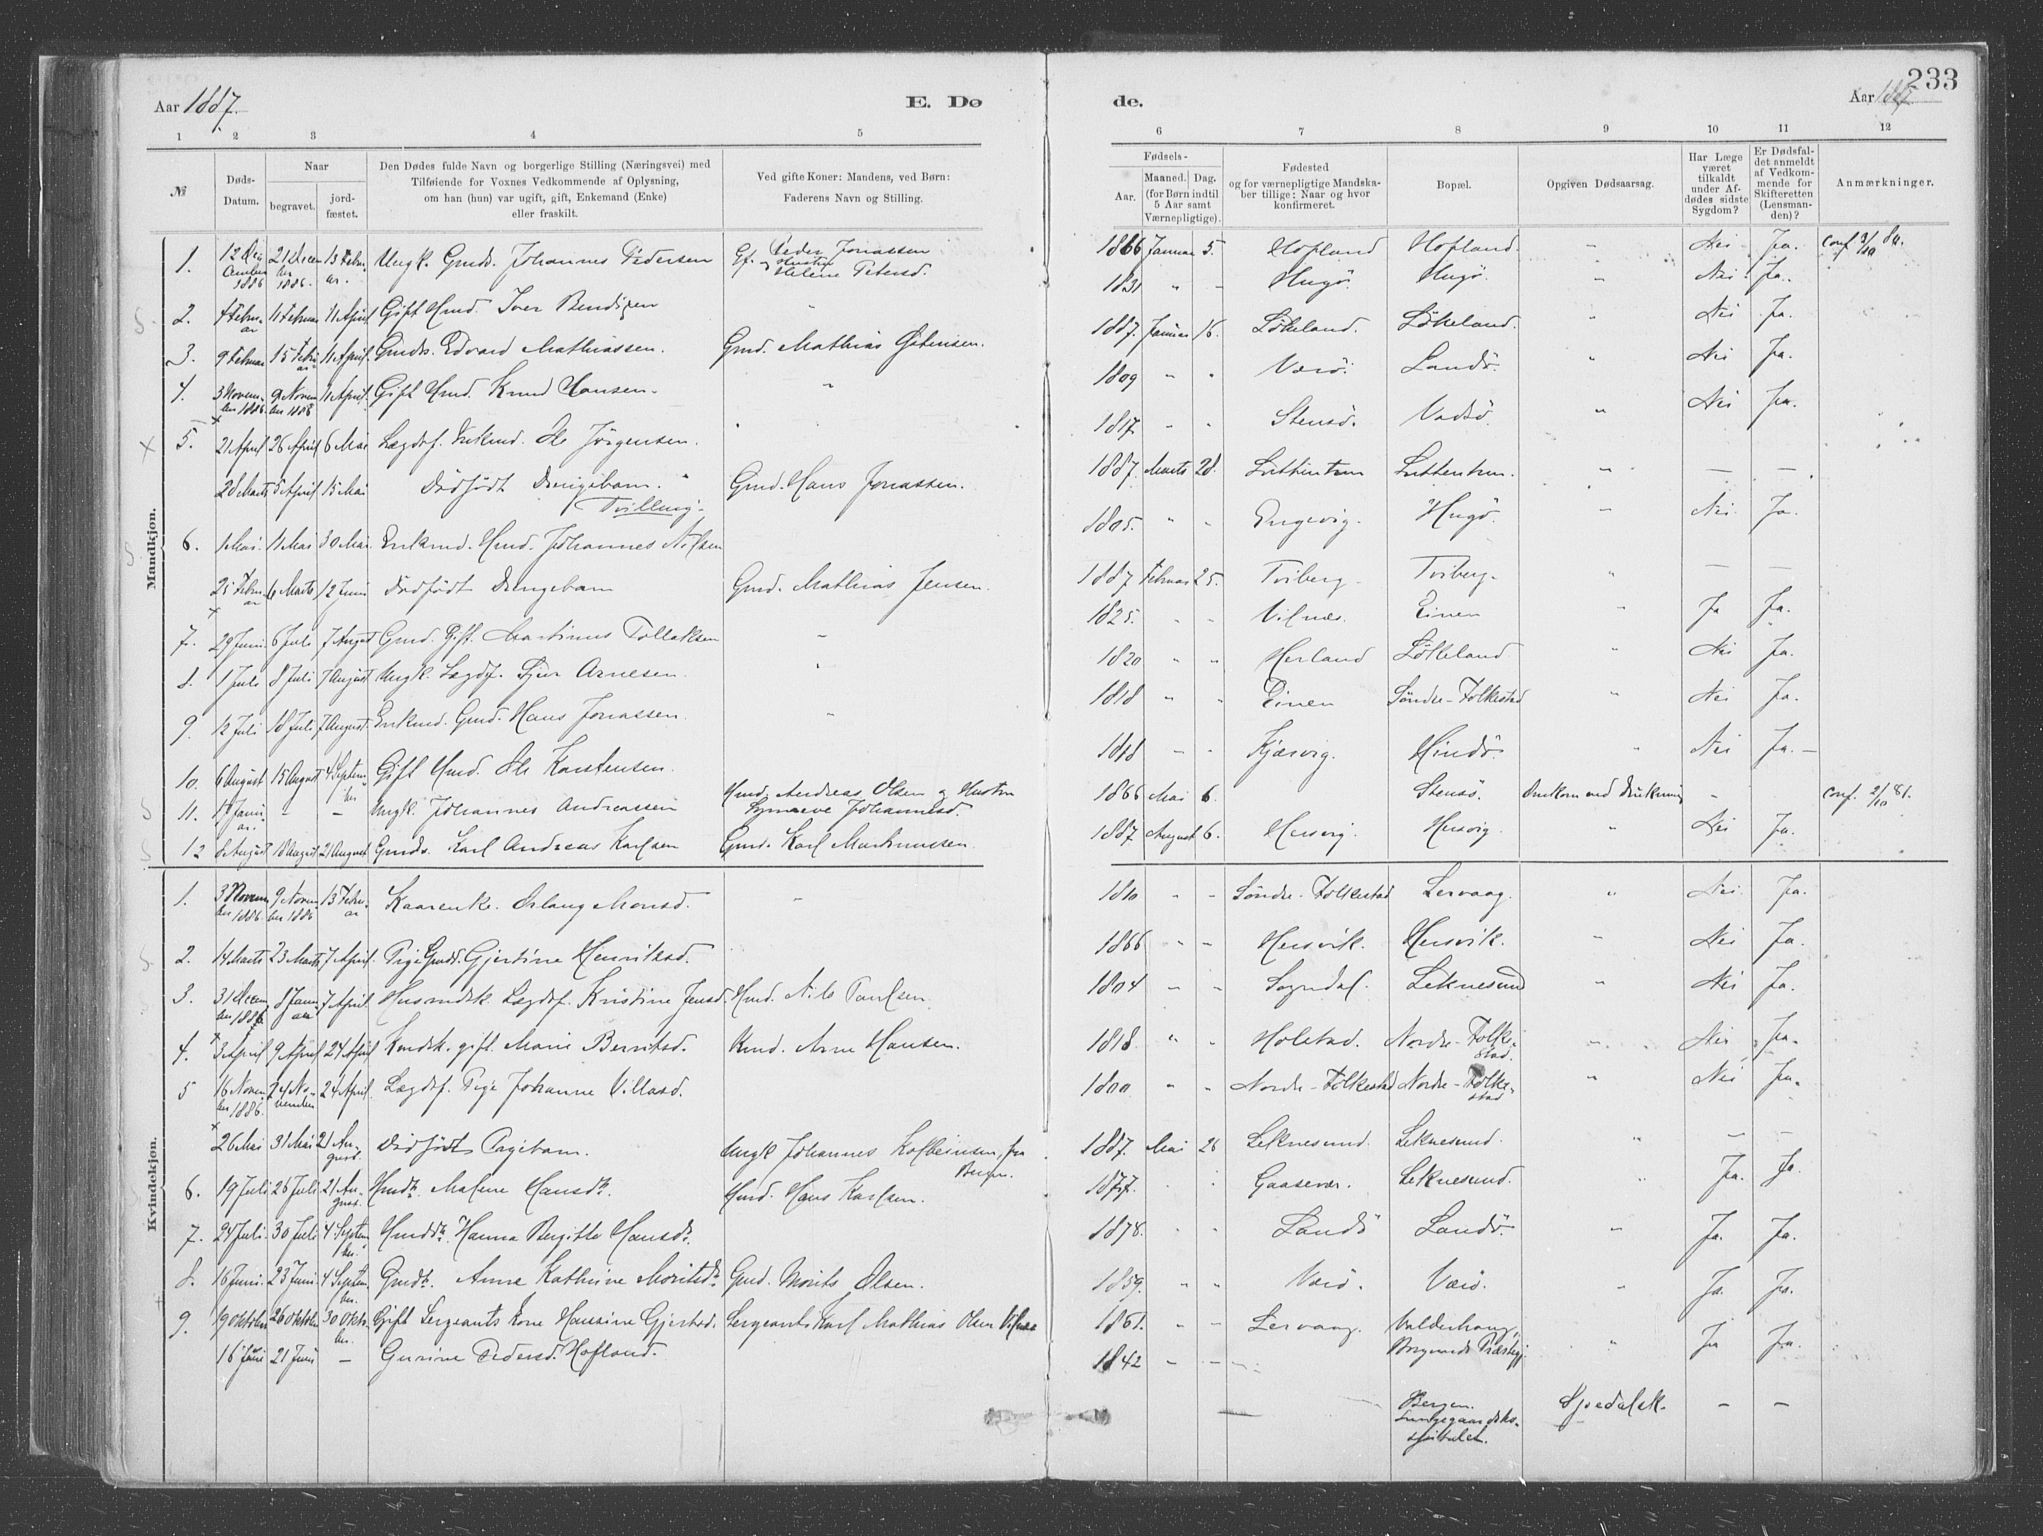 Aar 1887.
E. Dø
de.
Aar 1887
233
1 2 3 4 5 6 7 8 9 10 11 12
№
Døds-
Datum.
Naar
begravet.
jord-
fæstet.
Den Dødes fulde Navn og borgerlige Stilling (Næringsvei) med
Tilføiende for Voxnes Vedkommende af Oplysning,
om han (hun) var ugift, gift, Enkemand (Enke)
eller fraskilt.
Ved gifte Koner: Mandens, ved Børn:
Faderens Navn og Stilling.
Fødsels-
Aar.
Maaned. Dag.
(for Børn indtil
5 Aar samt
Værnepligtige).
Fødested
og for værnepligtige Mandska-
ber tillige: Naar og hvor
konfirmeret.
Bopæl.
Opgiven Dødsaarsag.
Har Læge
været
tilkaldt
under Af-
dødes sidste
Sygdom?
Er Dødsfal-
det anmeldt
af Vedkom-
mende for
Skifteretten
(Lensman-
den)?
Anmærkninger.
Mandkjøn.
1. 12 Dec ember 1886 21 Decem ber 1886. 13 Febru- ar. Ungk. Gmds. Johannes Pedersen Gf. Peder Jonassen og Hustru Helene Petersd. 1866 Januar 5. Hofland Hofland. " Nei Ja. conf. 3/10 80.
2. 4 Febru- ar 11 Februar 11 April Gift Hmd. Iver Bendixen " 1831 " - Hugø. Hugø. " Nei Ja.
3. 9 Februar 15 Febru ar 11 April. Gmds. Edvard Mathiassen. Gmd. Mathias Østensen. 1887. Januar 16. Løkeland. Løkeland. " Nei Ja.
4. 3 Novem- ber 1886. 9 Novem ber 1886 11 April. Gift Hmd. Knud Hansen. " 1809 " " Værø. Landø. " Nei Ja.
5. 21 April 26 April 6 Mai Lægdsf. Enkmd. Ole Jørgensen. " 1817. " " Stensø. Vadsø. " Nei Ja.
28 Marts 5 April 15 Mai Dødfødt Drengebarn. Tvilling. Gmd. Hans Jonassen. 1887. Marts 28. Luttentun Luttentun. " — —
6. 1 Mai. 11 Mai 30 Mai. Enkmd. Hmd. Johannes Nilsen 1805. " " Engevig. Hugø. " Nei. Ja.
25 Febru- ar 6 Marts 12 Juni Dødfødt Drengebarn Gmd. Mathias Jensen. 1887 Februar 25. Tviberg. Tviberg. " — —
7. 29 Juni 6 Juli 7 August Gmd. Gift. Martinus Tollaksen " 1825. " " Vilnæs. Einen " Ja Ja.
8. 1 Juli 8 Juli 7 August Ungk. Lægdsf. Sjur Arnesen. " 1820 " " Herland Løkeland. " Nei Ja.
9. 12 Juli 18 Juli 7 August Enkmd. Gmd. Hans Jonassen. " 1818 " " Einen Søndre-Folkestad " Nei Ja.
10. 6 August 15 August 4 Septem- ber Gift Hmd. Ole Karstensen. 1818 " " Kjærvig. Hindø " Nei Ja. —
11. 18 Janu- ar. - - Ungk. Johannes Andreassen Hmd. Andreas Olsen og Hustru Synneve Johannesd. 1866 Mai 6. Stensø. Omkom ved Drukning - conf. 2/10 81.
12 8 August 18 August 21 August Gmds. Karl Andreas Karlsen Gmd. Karl Markussen. 1887 August 6. Hersvig. Hersvig. " Nei Ja.
Kvindekjøn.
1. 3 Novem ber 1886. 9 Novem- ber 1886 13 Febru- ar Kaarenke. Monsd. - 1810 " - Søndre-Folkestad Lervaag. " Nei. Ja.
2. 14 Marts 23 Marts 7 April. Pige Gmds. Gjertine Henriksd. 1866 - - Hersvik. Hersvik. " Nei Ja.
3. 31 Decem ber 1886. 8 Janu- ar 7 April. Husmdsk. Lægdsf. Kristine Jensd. Hmd. Nils Paulsen. 1804 - - Sogndal. Leknesund " Nei Ja.
4. 3 April 9 April 24 April Kmdsk. gift. Marie Berntsd. Kmd. Arne Hansen. 1818. " " Holstad. Nordre-Folke- stad. " Nei Ja.
5 16 Novem ber 1886. 24 No- vember 24 April. Lægdsf. Pige Johanne Villasd. 1800 " " Nordre-Folkestad Nordre-Folke- stad " Nei Ja.
26 Mai 31 Mai 21 Au- gust. Dødfødt Pigebarn. Ungk Johannes Kolbeinsen, fra Bergen. 1887. Mai 26 Leknesund. Leknesund. " — —
6. 19 Juli 26 Juli 21 Au- gust. Hmdb. Malene Hansdtr. Hmd. Hans Karlsen. 1877. " " Gaasevær. Leknesund. " Ja. Ja.
7. 24 Juli. 30 Juli 4 Septem ber. Hmdsdtr. Hanna Bergitte Hansdtr. 1878. " " Landø Landø. " Ja. Ja.
8. 16 Juni. 23 Juni 4 Septem- ber. Gmdb. Anna Kathrine Moritsdtr. Gmd. Morits Olsen. 1859. " " Værø. Værø. " Ja Ja.
9. 19 Oktober 26 Oktober 30 Okto- ber. Gift Sergeants Kone Hansine Gjertsd. Sergeant Karl Mathias Olsen Vilnæs 1861. " " Lervaag. Valderhaug, Borgunds Præstegj. " Ja Ja.
16 Juni 21 Juni — Gurine Pedersd. Hofland. 1842 - - — Bergen. Lungegaardsho- spitalet. Spedalsk. — —